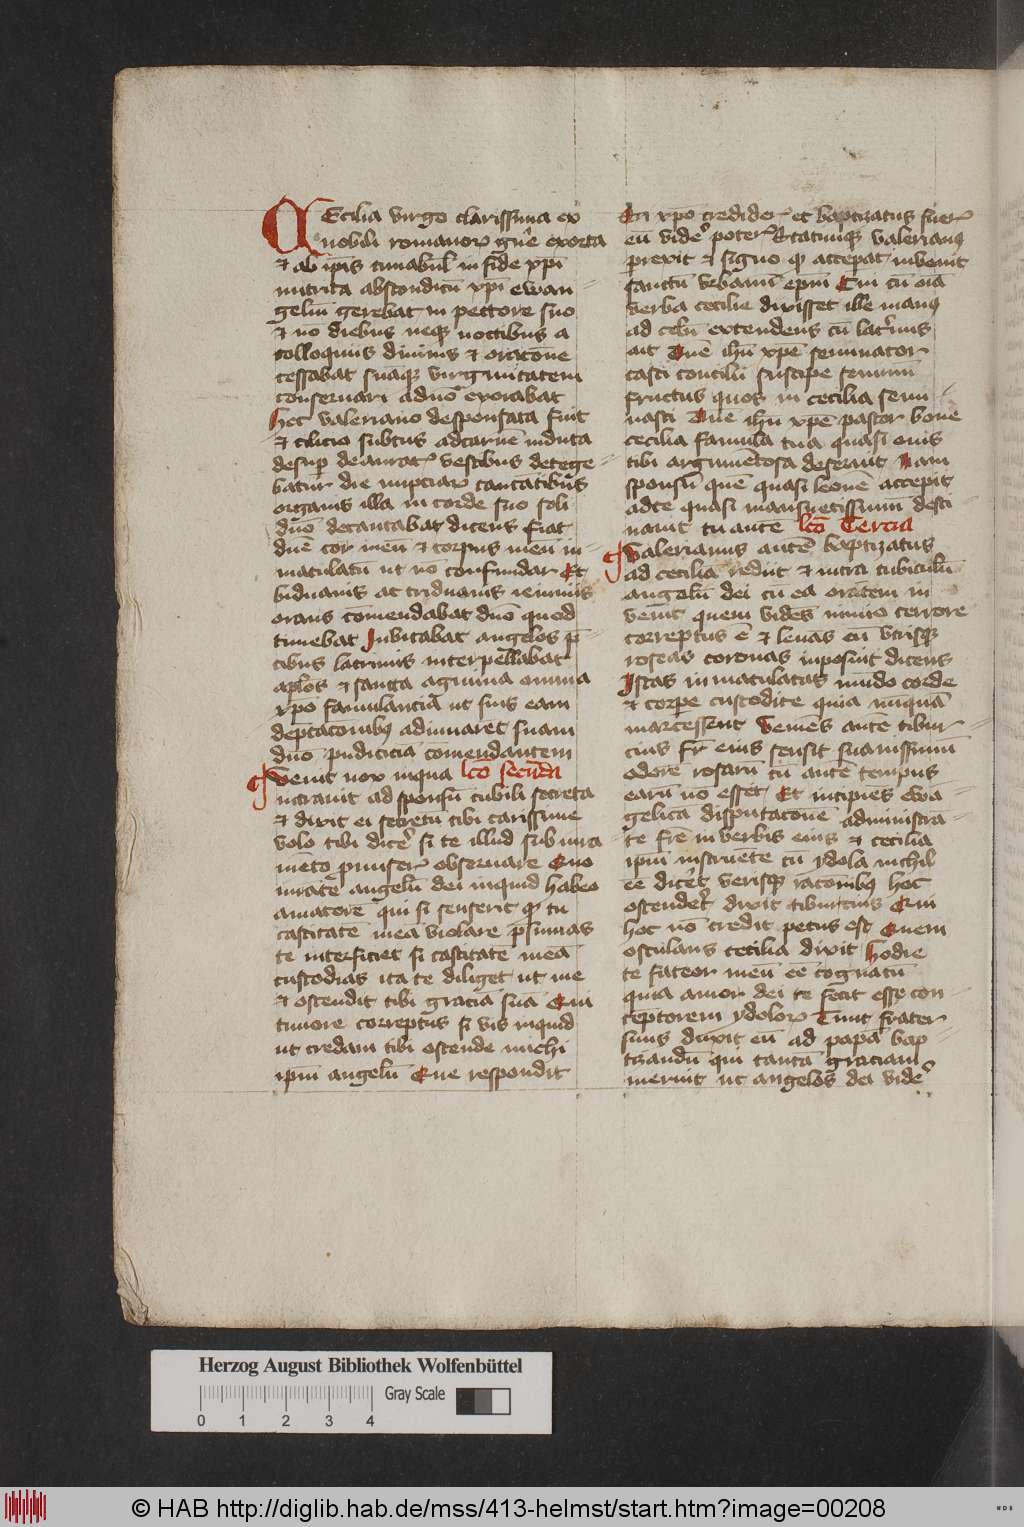 CEcilia virgo clarissima ex
nobili romanoꝝ gn̄e exorta
⁊ ab ip̄is cunabul̄ in fide xp̄i
nutrita absconditū xp̄i ewan
geliū gerebat in pectore suo
⁊ nō diebus neqꝫ noctibus a
colloquiis diuinis ⁊ orac̄one
cessabat suāqꝫ virginitatem
conseruari a dn̄o exorabat
Hec valeriano desponsata fuit
⁊ cilicio subtus ad carnē induta
desup̄ deaurat vestibus detege
batur die nupciaꝝ cantātibus
organis illa in corde suo soli
dn̄o decantabat dicens fiat
dn̄e cor meū ⁊ corpus meū in
maculatū ut nō confundar Et
biduanis ac triduanis ieiuniis
orans cōmendabat dn̄o quod
timebat Inuitabat angelos p̄
cibus lacrimis interpellabat
apl̄os ⁊ sancta agmina omnia
xp̄o famulancia ut suis eam
dep̄cac̄onibꝫ adiuuaret suam
dn̄o pudiciciā comendantem
¶ Venit nox in qua lc̄o secūda
intrauit ad sponsū cubili secreta
⁊ dixit ei secretū tibi carissime
volo tibi dic̄e si te illud sub iura
meto p̄miseꝝ obseruare Quo
iurāte angelū dei inquid habeo
amatorē qui si senserit ꝙ tu
castitatē meā violare p̄sumas
te interficiet si castitatē meā
custodias ita te diliget ut me
⁊ ostendit tibi graciā suā Qui
timore correptus si vis inquid
ut credam tibi ostende michi
ipm̄ angelū Que respondit
In xp̄o credider et baptizatus fueꝝ
eū vidē poteꝝ Statimqꝫ valerianꝰ
perrexit ⁊ signo ꝙ accepat inuenit
sanctū vrbanū ep̄m Cui cū oīa
verba cecilie dixisset ille manꝰ
ad celū extendens cū lac̄mis
ait Dn̄e ihū xp̄e seminator
casti concilii suscipe seminū
fructus quos in cecilia semi
nasti Dn̄e ihū xp̄e pastor bone
cecilia famula tua quasi ouis
tibi argumētosa deseruit Nam
sponsū quē quasi leonē accepit
ad te quasi mansuetissimū desti
nauit tu ante lc̄o Tercia
¶ Valerianus autē baptizatus
ad ceciliā rediit ⁊ intra cubiculū
angelū dei cū ea orātem in
venit quem vidēs nimio terrore
correptus ē ⁊ leuās eū vtrisqꝫ
roseas coronas inposuit dicens
Istas inmaculatas mūdo corde
⁊ corpe custodite quia nūquā
marcessent Veniēs autē tibur
cius fr̄ eius sensit suauissimū
odorē rosarū cū autē tempus
earū nō esset Et incipiēs ewā
gelica disputac̄onē administrā
te fr̄e in verbis eius ⁊ cecilia
ipm̄ instruēte cū ydola nichil
eē dic̄et verisqꝫ rac̄onibꝫ hoc
ostendet dixit tiburcius Qui
hoc nō credit pecus est Quem
osculans cecilia dixit Hodie
te fateor meū eē cognatū
quia amor dei te fecit esse con
ceptorem ydoloꝝ Tunc frater
suus duxit eū ad papā bap
tizandū qui tantā graciam
meruit ut angelos dei vidē
Herzog August Bibliothek Wolfenbüttel
0 1 2 3 4 Gray Scale
© HAB http://diglib.hab.de/mss/413-helmst/start.htm?image=00208